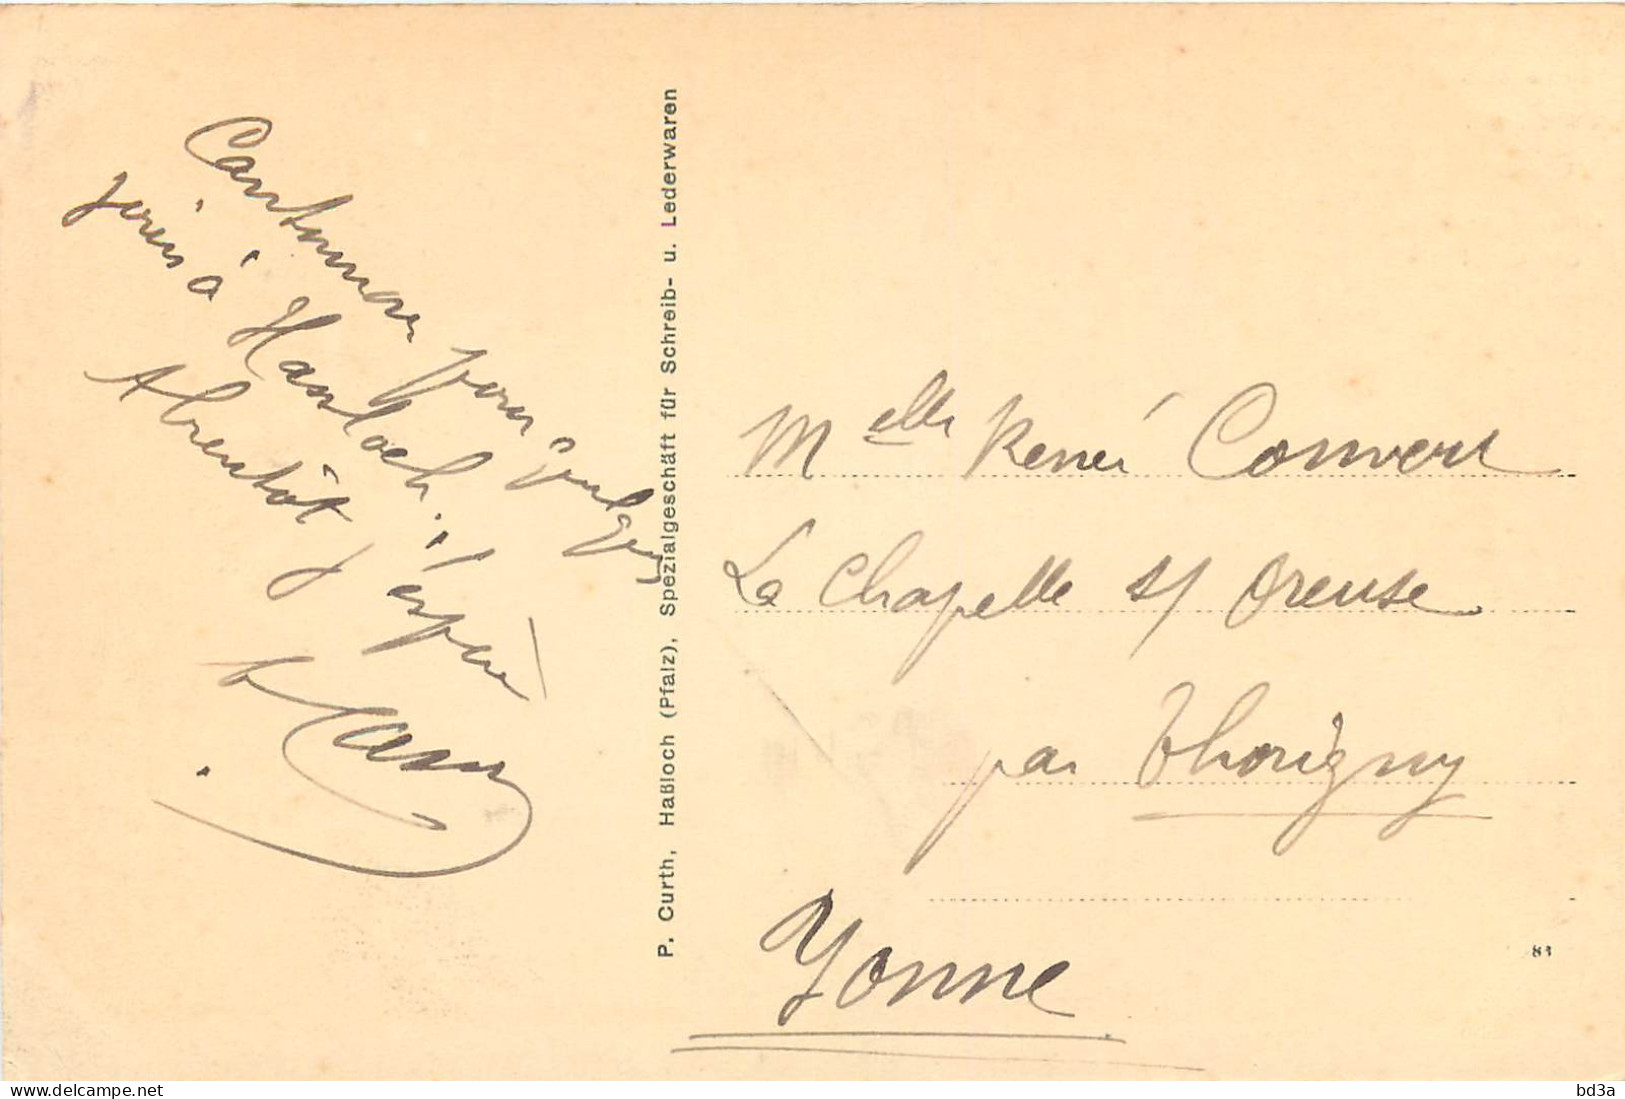 Cantonnons pour quelques
jours à Hassloch.
A bientôt j'espère
P. Curth, Haßloch (Pfalz), Spezialgeschäft für Schreib- u. Lederwaren
Melle René Convert
La Chapelle s/ Oreuse
par Thorigny
Yonne
83
delcampe.net
bd3a